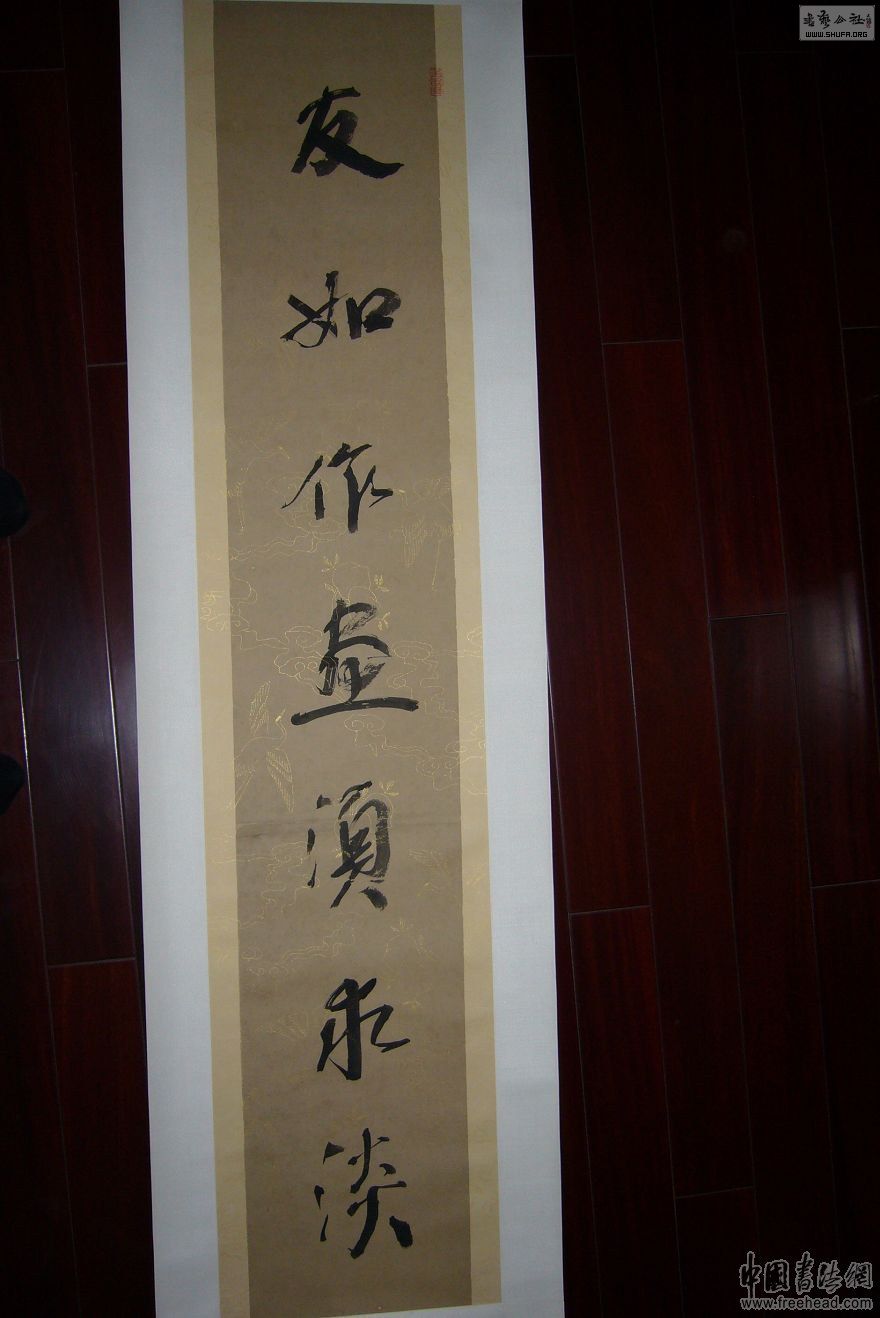 友如作画须求淡
书艺公社
WWW.SHUFA.ORG
中国书法网
www.freehead.com